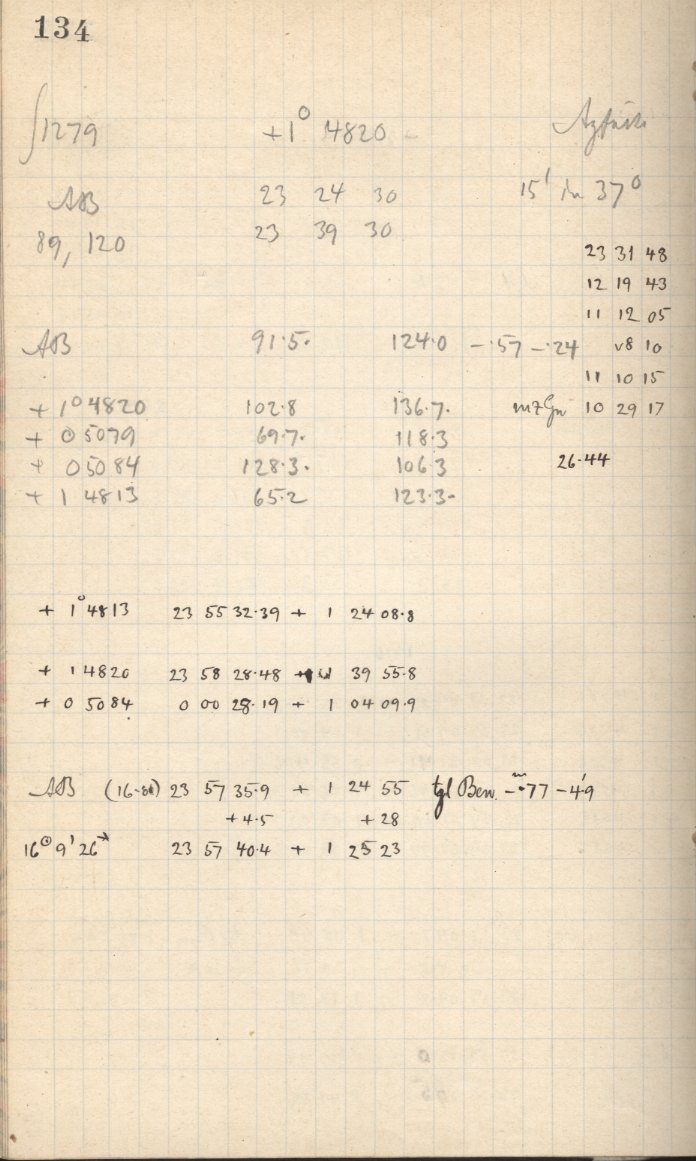 134
∫1279 +1° 4820
AB 23 24 30 15' in 37°
89, 120 23 39 30
23 31 48
12 19 43
11 12 05
AB 91.5. 124.0 -.57 -.24 8 10
11 10 15
+ 1° 4820 102.8 136.7. mZGw 10 29 17
+ 0 5079 69.7. 118.3
+ 0 5084 128.3. 106.3 26.44
+ 1 4813 65.2 123.3-
+ 1° 4813 23 55 32.39 + 1 24 08.8
+ 1 4820 23 58 28.48 + 1 39 55.8
+ 0 5084 0 00 28.19 + 1 04 09.9
AB 23 57 35.9 + 1 24 55 tgl Bew. -.77 -4.9
+4.5 +28
16 9 26 23 57 40.4 + 1 25 23